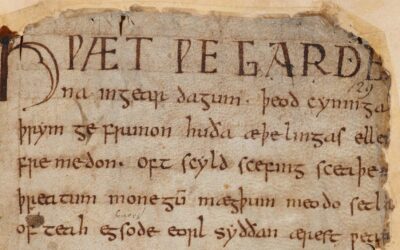 HǷÆT ǷE GARDE
na ingear dagum. þeod cyninga
þrym ge frunon huða æþelingas elle
fre medon. oft scyld scefing sceaþe
þreatum monegū mægþum meodo setla
of teah egsode eorl syððan ærest ƿe